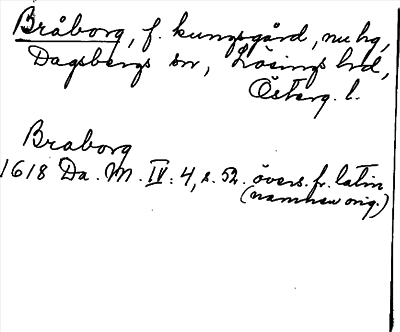 Bråborg, f. kungsgård, nu hg,
Dagsbergs sn, Lösings hd,
Österg. l.
Braborg
1618 Da. M. IV: 4, s. 52. övers. fr. latin
(namnen orig.)